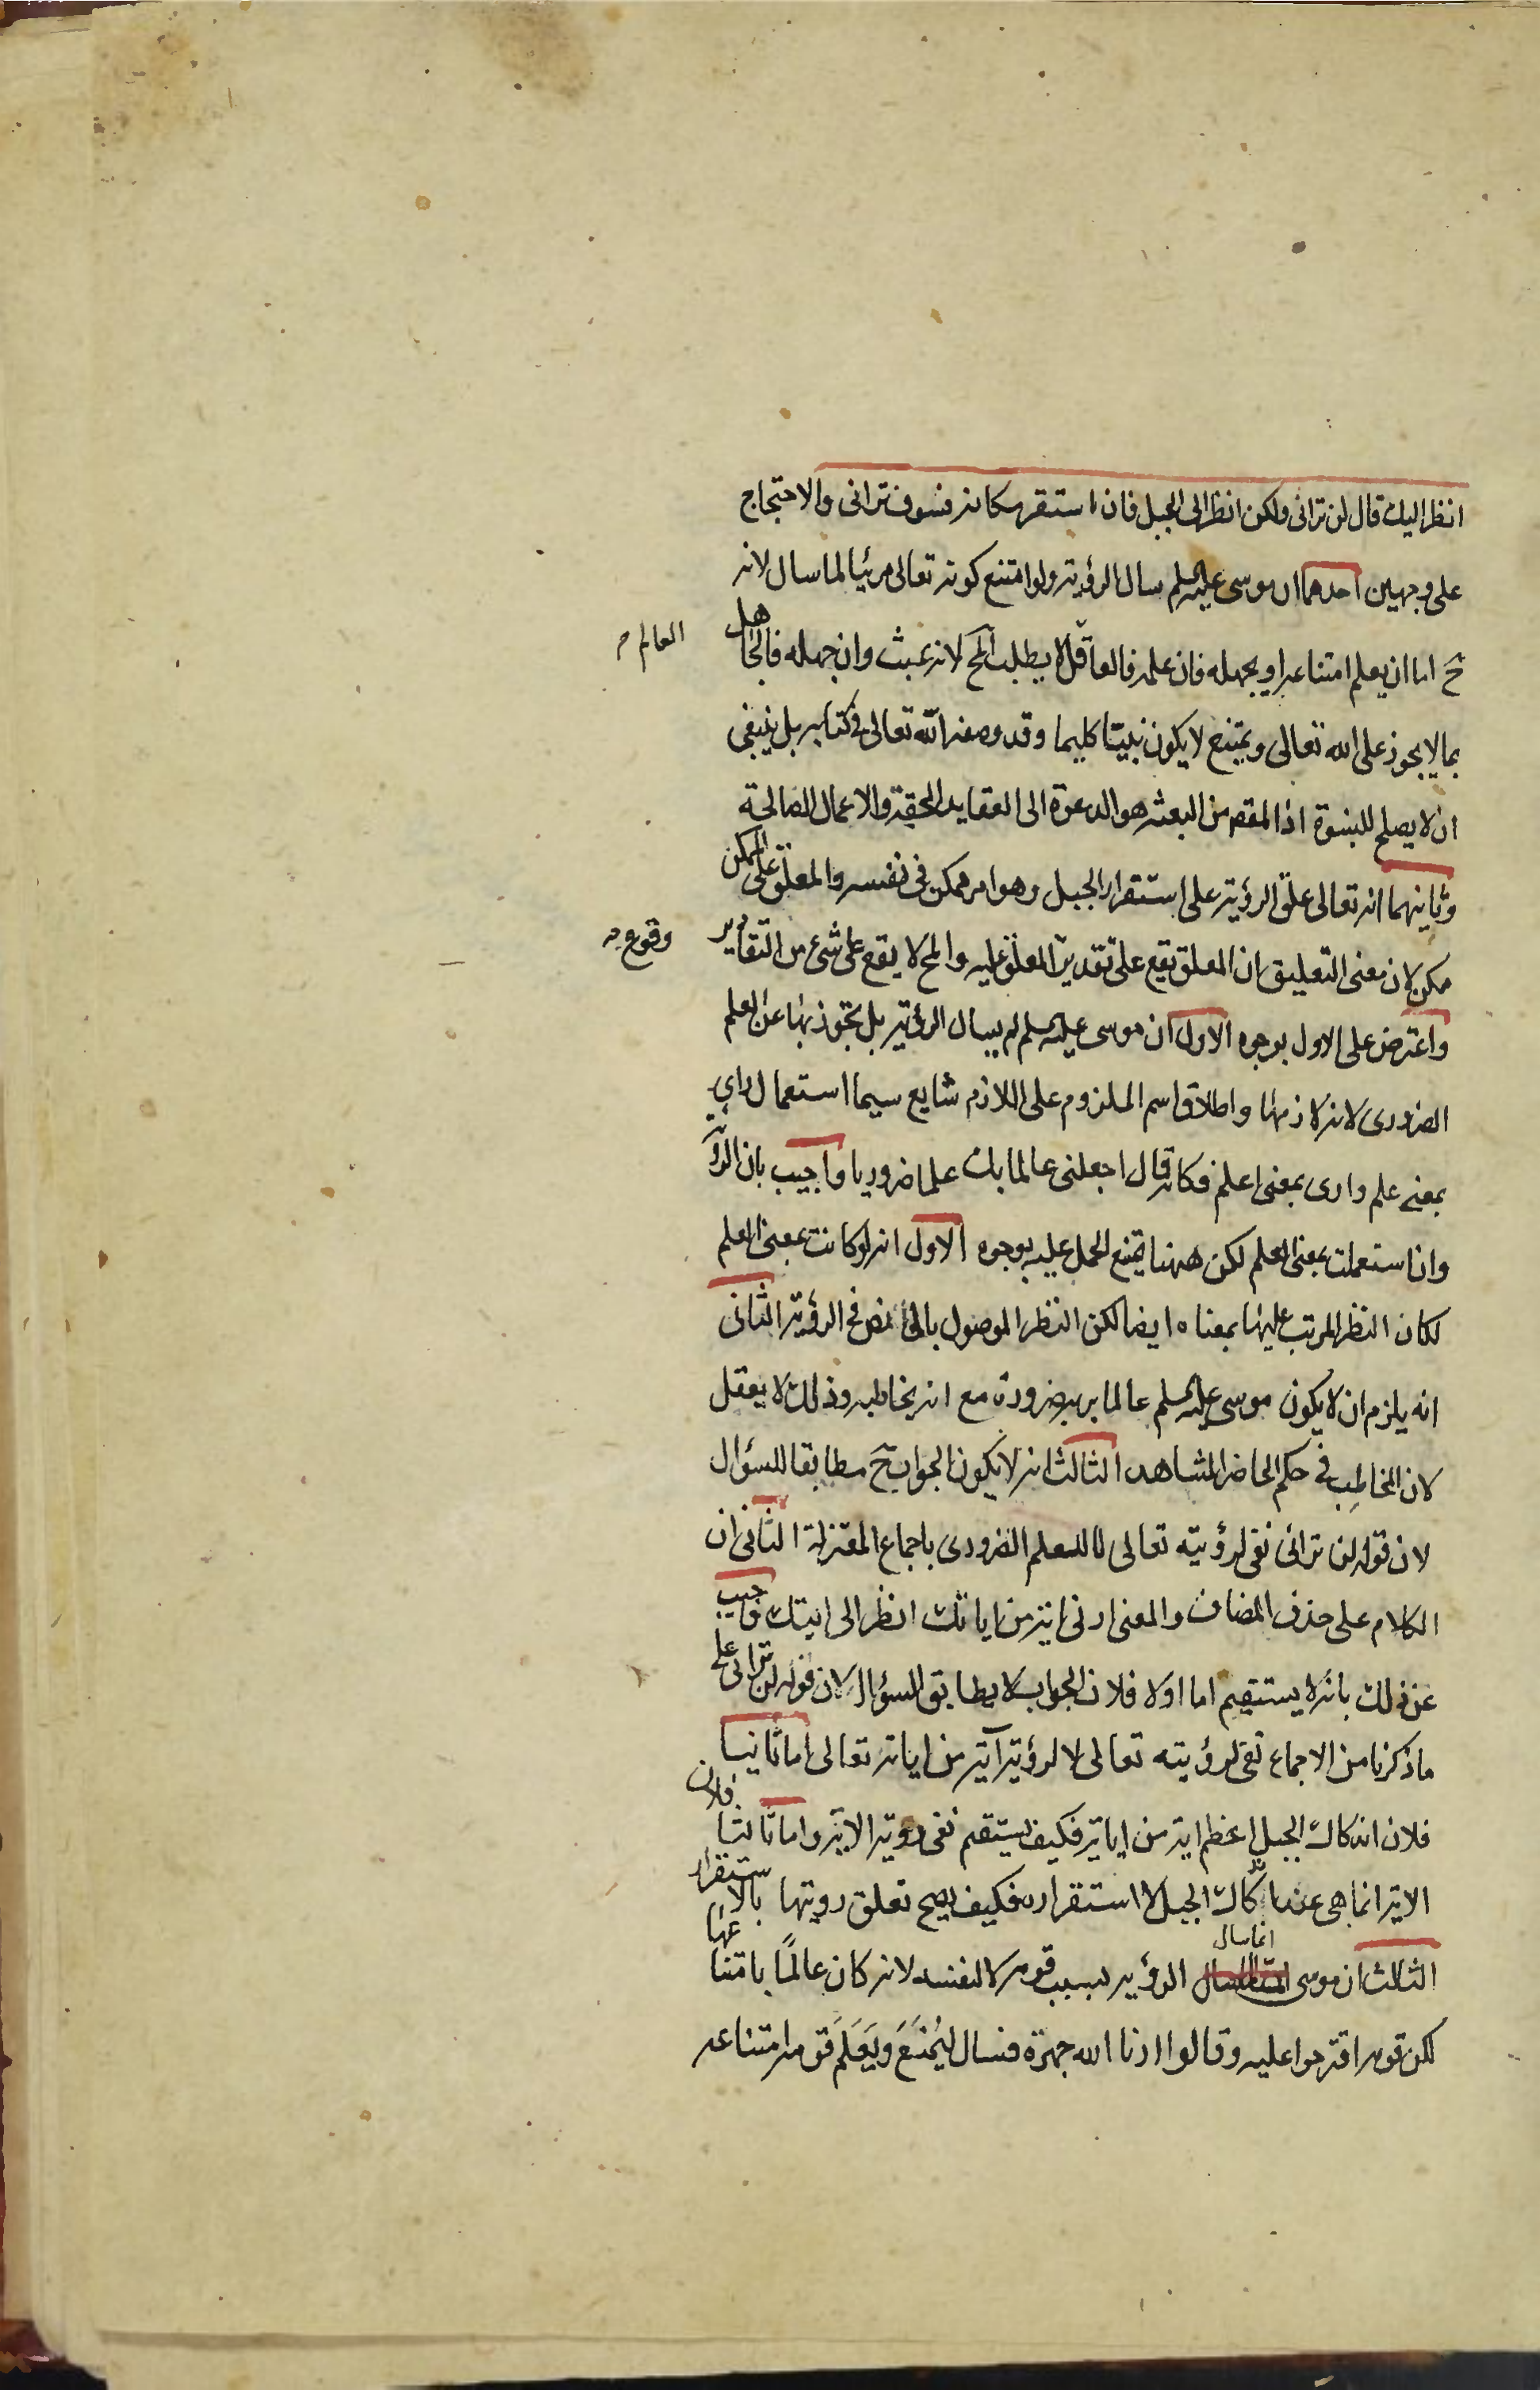 انظر اليك قال لن ترانى ولكن انظر الى الجبل فان استقر مكانه فسوف ترانى والاحتجاج
على وجهين احدهما ان موسى عليه السلم سال الرؤية ولو امتنع كونه تعالى مرئيا لما سال لانه
ح اما ان يعلم امتناعه او يجهله فان علمه فالعاقل لا يطلب المح لانه عبث وان جهله فالجاهل
العالم
بما لا يجوز على الله تعالى ويمتنع لا يكون نبيا كليما وقد وصفه الله تعالى فى كتابه بل ينبغى
ان لا يصلح للنبوة اذ المقصد من البعثه هو الدعوة الى العقايد الحقية والاعمال الصالحة
وثانيهما انه تعالى علق الرؤية على استقرار الجبل وهو امر ممكن فى نفسه والمعلق على الممكن
ممكن لان معنى التعليق ان المعلق يقع على تقدير المعلق عليه والمح لا يقع على شئ من التقادير
وقوع
واعترض على الاول بوجوه الاول ان موسى عليه السلم لم يسال الرؤية بل تجوز بها عن العلم
الضرورى لانه لازمها واطلاق اسم الملزوم على اللازم شايع سيما استعمال راى
بمعنى علم وارى بمعنى اعلم فكانه قال اجعلنى عالما بك علما ضروريا واجيب بان الرؤية
وان استعملت بمعنى العلم لكن ههنا يمتنع الحمل عليه بوجوه الاول انه لو كانت بمعنى العلم
لكان النظر المرتب عليها بمعناه ايضا لكن النظر الموصول بالى نص فى الرؤية الثانى
انه يلزم ان لا يكون موسى عليه السلم عالما بربه ضرورة مع انه يخاطبه وذلك لا يعقل
لان المخاطب فى حكم الحاضر المشاهد الثالث انه لا يكون الجواب ح مطابقا للسؤال
لان قوله لن ترانى نفى لرؤيته تعالى لا للعلم الضرورى باجماع المعتزلة الثانى ان
الكلام على حذف المضاف والمعنى ارنى اية من اياتك انظر الى ايتك واجيب
عن ذلك بانه لا يستقيم اما اولا فلان الجواب لا يطابق السؤال لان قوله لن ترانى على
ما ذكرنا من الاجماع نفى لرؤيته تعالى لا لرؤية آية من اياته تعالى اما ثانيا
فلان اندكاك الجبل اعظم اية من اياته فكيف يستقيم نفى روية الاية واما ثالثا فلان
الاية انما هى عند اندكاك الجبل لا استقراره فكيف يصح تعلق رويتها بالاستقرار
الثالث ان موسى انما سال الرؤية بسبب قومه لا لنفسه لانه كان عالمًا بامتناعها
لكن قومه اقترحوا عليه وقالوا ارنا الله جهرة فسال ليُمنَعَ ويَعَلَم قومه امتناعه